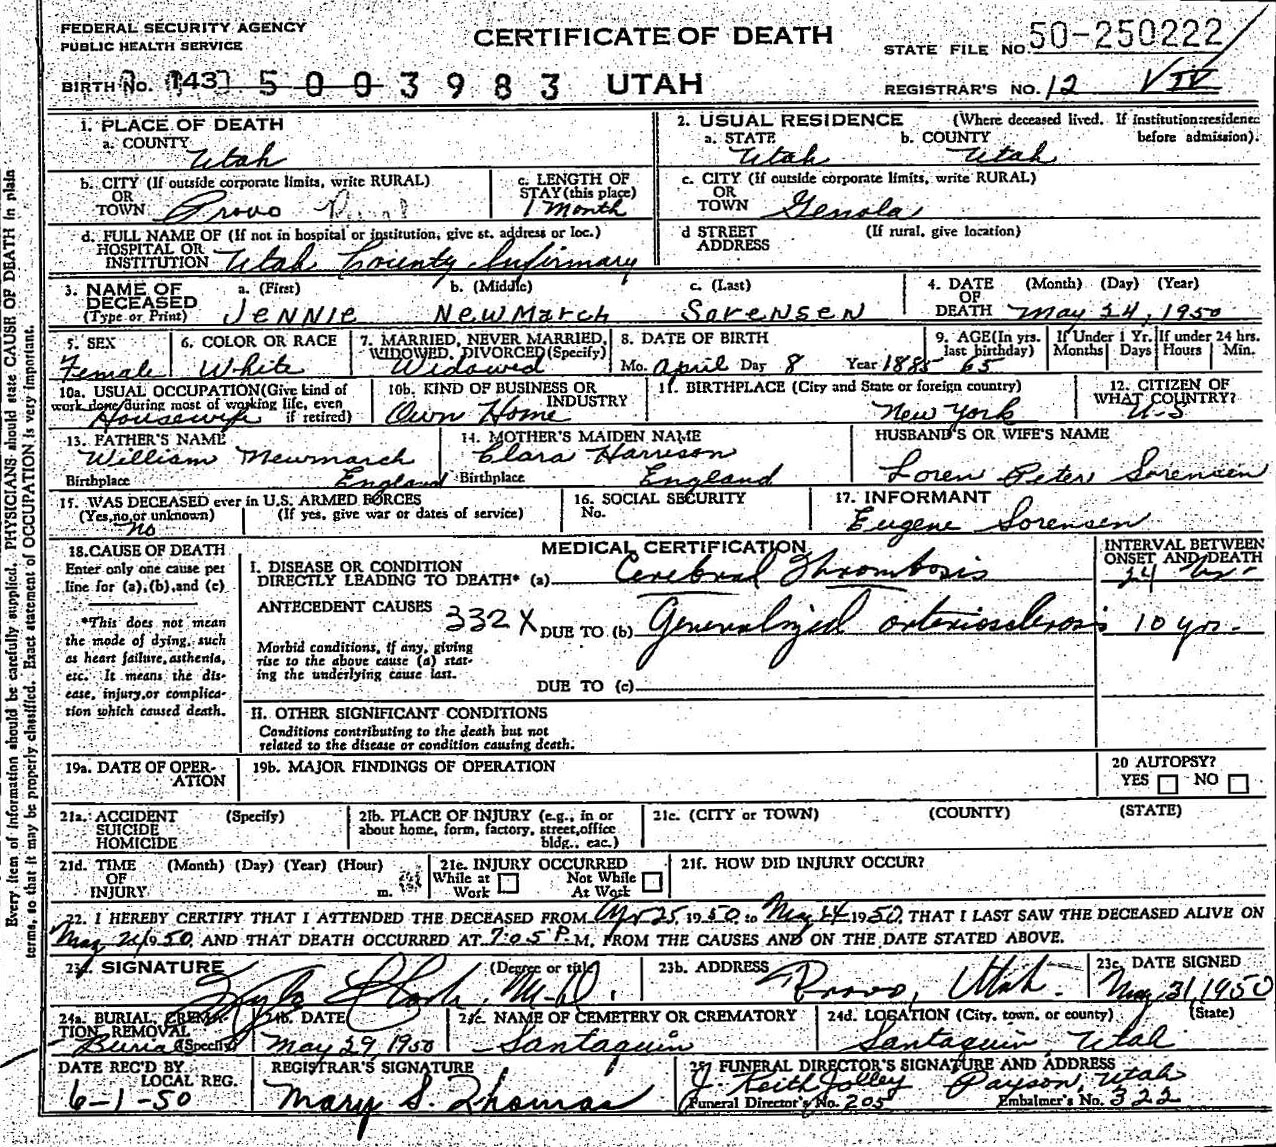 FEDERAL SECURITY AGENCY
PUBLIC HEALTH SERVICE
CERTIFICATE OF DEATH
STATE FILE NO. 50-250222
BIRTH No. 143 5003983 UTAH
REGISTRAR'S NO. 12 VIV
1. PLACE OF DEATH
a. COUNTY Utah
2. USUAL RESIDENCE (Where deceased lived. If institution: residence before admission).
a. STATE Utah b. COUNTY Utah
b. CITY (If outside corporate limits, write RURAL)
OR
TOWN Provo Rural
c. LENGTH OF
STAY (this place)
1 Month
c. CITY (If outside corporate limits, write RURAL)
OR
TOWN Genola
d. FULL NAME OF (If not in hospital or institution, give st. address or loc.)
HOSPITAL OR
INSTITUTION Utah County Infirmary
d STREET (If rural, give location)
ADDRESS
3. NAME OF DECEASED (Type or Print)
a. (First) b. (Middle) c. (Last)
JENNIE NewMarch SorENSEN
4. DATE OF DEATH (Month) (Day) (Year)
May 24, 1950
5. SEX
Female
6. COLOR OR RACE
White
7. MARRIED, NEVER MARRIED,
WIDOWED, DIVORCED (Specify)
Widowed
8. DATE OF BIRTH
Mo. April Day 8 Year 1885
9. AGE (In yrs. last birthday)
65
If Under 1 Yr.
Months Days
If under 24 hrs.
Hours Min.
10a. USUAL OCCUPATION (Give kind of
work done during most of working life, even
if retired)
Housewife
10b. KIND OF BUSINESS OR
INDUSTRY
Own Home
11. BIRTHPLACE (City and State or foreign country)
New York
12. CITIZEN OF
WHAT COUNTRY?
U-S
13. FATHER'S NAME
William Newmarch
Birthplace England
14. MOTHER'S MAIDEN NAME
Clara Harrison
Birthplace England
HUSBAND'S OR WIFE'S NAME
Loren Peter Sorensen
15. WAS DECEASED ever in U.S. ARMED FORCES
(Yes, no, or unknown) (If yes, give war or dates of service)
No
16. SOCIAL SECURITY
No.
17. INFORMANT
Eugene Sorensen
18. CAUSE OF DEATH
Enter only one cause per
line for (a), (b), and (c)
*This does not mean
the mode of dying, such
as heart failure, asthenia,
etc. It means the dis-
ease, injury, or complica-
tion which caused death.
MEDICAL CERTIFICATION
INTERVAL BETWEEN
ONSET AND DEATH
I. DISEASE OR CONDITION
DIRECTLY LEADING TO DEATH* (a) Cerebral Thrombosis 24 hrs.
ANTECEDENT CAUSES
332X DUE TO (b) Generalized arteriosclerosis 10 yrs.
Morbid conditions, if any, giving
rise to the above cause (a) stat-
ing the underlying cause last.
DUE TO (c)
II. OTHER SIGNIFICANT CONDITIONS
Conditions contributing to the death but not
related to the disease or condition causing death.
19a. DATE OF OPER-
ATION
19b. MAJOR FINDINGS OF OPERATION
20 AUTOPSY?
YES NO
21a. ACCIDENT (Specify)
SUICIDE
HOMICIDE
21b. PLACE OF INJURY (e.g., in or
about home, form, factory, street, office
bldg., eac.)
21c. (CITY or TOWN) (COUNTY) (STATE)
21d. TIME (Month) (Day) (Year) (Hour)
OF
INJURY m.
21e. INJURY OCCURRED
While at Work Not While At Work
21f. HOW DID INJURY OCCUR?
22. I HEREBY CERTIFY THAT I ATTENDED THE DECEASED FROM Apr 25, 1950, to May 24 1950, THAT I LAST SAW THE DECEASED ALIVE ON
May 24 1950, AND THAT DEATH OCCURRED AT 7:05 P.M. FROM THE CAUSES AND ON THE DATE STATED ABOVE.
23a. SIGNATURE (Degree or title)
Clark, M.D.
23b. ADDRESS
Provo, Utah.
23c. DATE SIGNED
May 31, 1950
24a. BURIAL, CREMA-
TION, REMOVAL
(Specify)
Burial
24b. DATE
May 29, 1950
24c. NAME OF CEMETERY OR CREMATORY
Santaquin
24d. LOCATION (City, town, or county) (State)
Santaquin Utah
DATE REC'D BY
LOCAL REG.
6-1-50
REGISTRAR'S SIGNATURE
Mary S. Thomas
25. FUNERAL DIRECTOR'S SIGNATURE AND ADDRESS
J. Keith Jolley Payson, Utah
Funeral Director's No. 205 Embalmer's No. 322
Every item of information should be carefully supplied. PHYSICIANS should state CAUSE OF DEATH in plain
terms, so that it may be properly classified. Exact statement of OCCUPATION is very important.